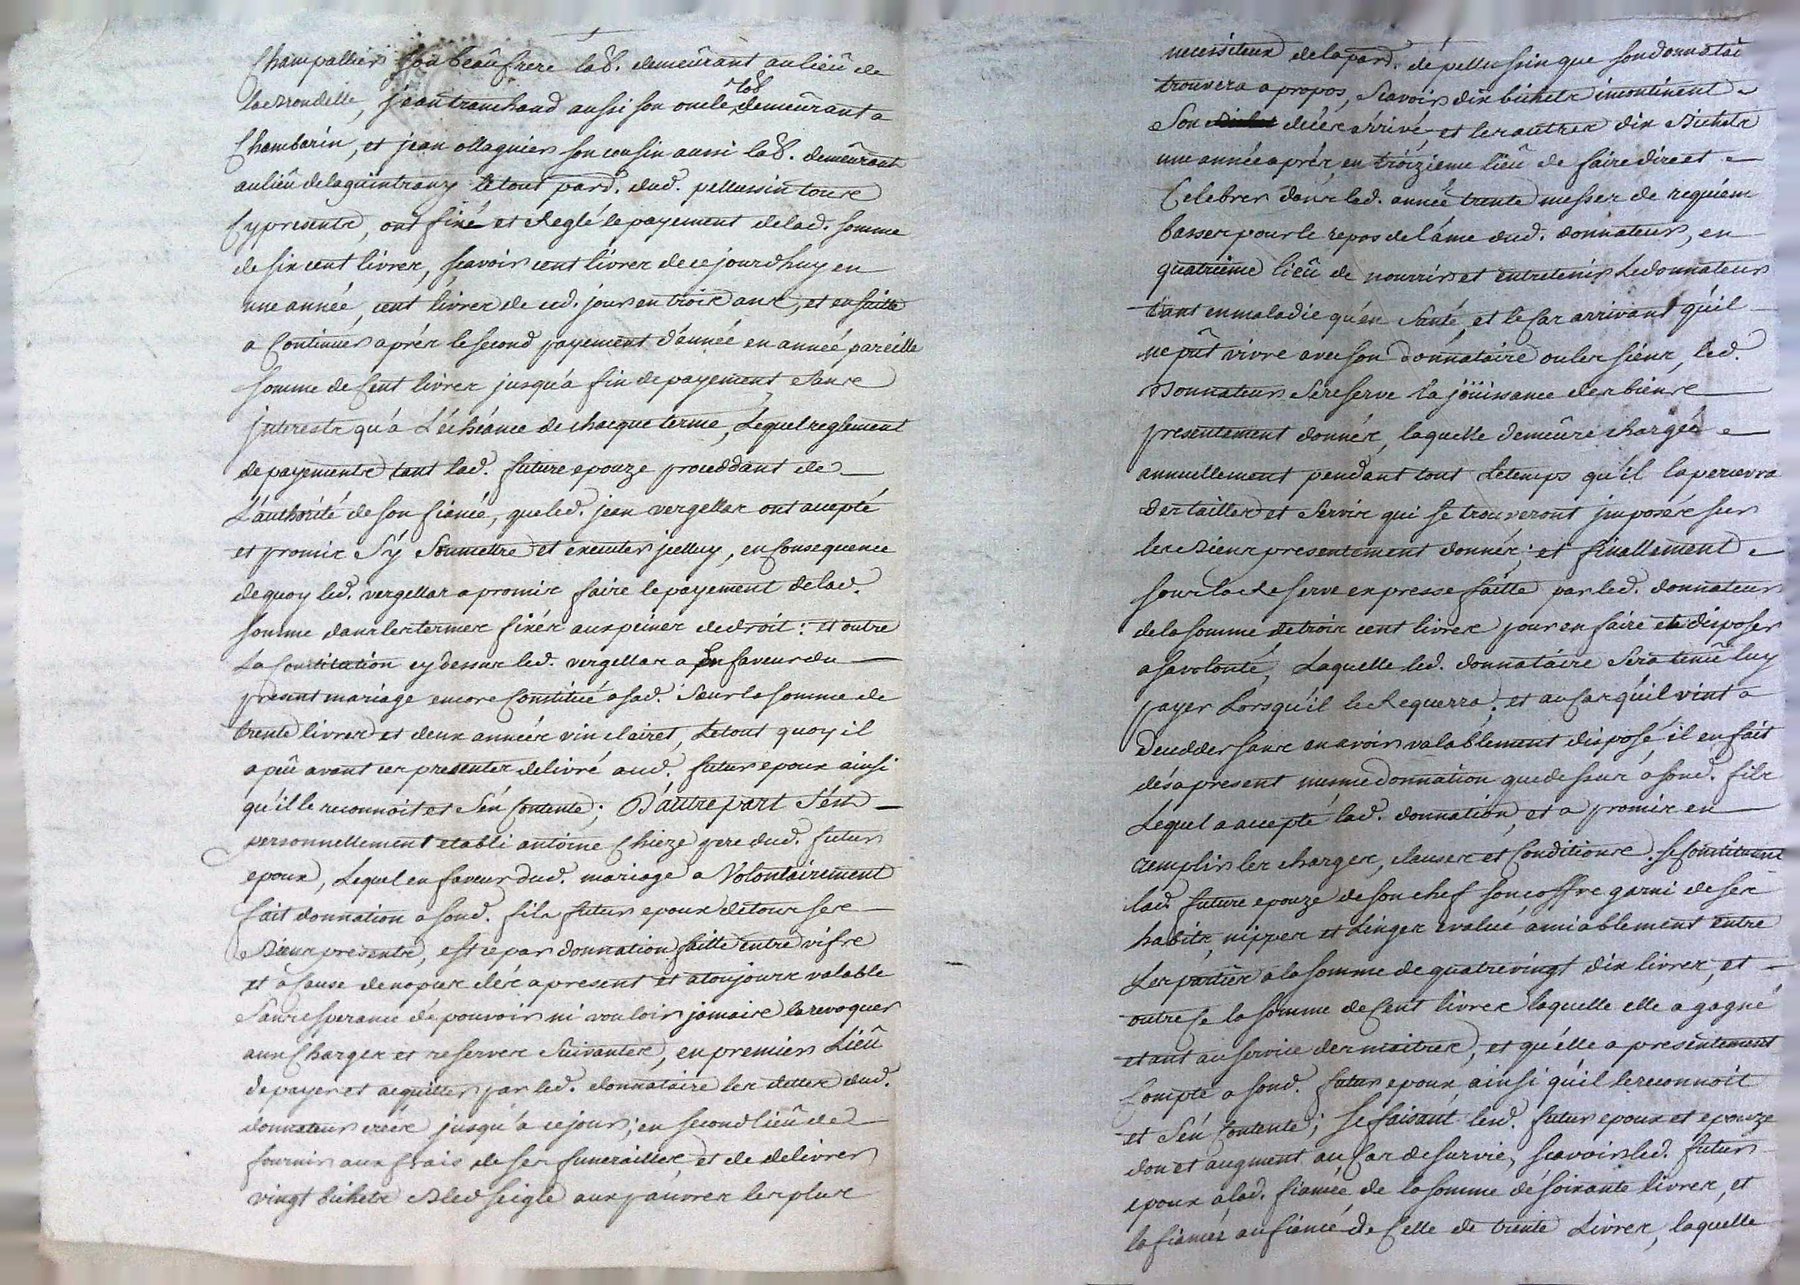 Champallier son beaûfrere lab. demeûrant au lieû de
lacrondelle, jean tranchand aussi son oncle lab. demeûrant a
Chambarin, et jean ollagnier son cousin aussi lab. demeûrant
au lieû de laguintrany le tout parr. dud. pellussin tous
Cy presents, ont fixé et Reglé le payement de lad. somme
de six cent livres, scavoir cent livres de ce jourdhuy en
une année, cent livres de ced. jour en trois ans, et ensuitte
a Continuer aprés le second payement d'année en année pareille
somme de Cent livres jusqu'a fin de payement, sans
jnterests qu'a L'échéance de chacque terme, Lequel reglement
de payements tant lad. future epouze procedant de
L'authorité de son fiancé, que led. jean vergellas ont accepté
et promis s'y soumettre et executer jcelluy, en Consequence
de quoy led. vergellas a promis faire le payement de lad.
somme dans les termes fixés aux peines de droit: et outre
La Constitution cy dessus led. vergellas a en faveur du
present mariage encore Constitué a sad. soeur la somme de
trente livres et deux années vin clairet, Le tout quoy il
a peû avant ces presentes délivré aud. futur epoux ainsi
qu'il le reconnoit et s'en Contente; D'autre part s'est
personnellement etabli antoine Chieze pere dud. futur
epoux, Lequel en faveur dud. mariage a Volontairement
fait donnation a sond. fils futur epoux de tous ses
Biens presents, est ce par donnation faitte entre vifs
et a Cause de nopces dés a present et a toujours valable
sans esperance de pouvoir ni vouloir jamais la revoquer
aux Charges et reserves suivantes, en premier Lieû
de payer et acquitter par led. donnataire les dettes dud.
donnateur créés jusqu'a ce jour; en second lieû de
fournir aux frais de ses funerailles, et de delivrer
vingt bichets Bled seigle aux pauvres les plus
necessiteux de la parr. de pellussin que son donnatai
trouvera a propos, scavoir dix bichets incontinent
son décés arrivé et les autres dix Bichets
une année aprés, en troizieme lieû de faire dire et
Celebrer dans lad. année trente messes de requiem
basses pour le repos de l'âme dud. donnateur, en
quatrieme lieû de nourrir et entretenir Le donnateur
tant en maladie qu'én santé, et le Cas arrivant qu'il
ne pût vivre avec son donnataire ou les siens, led.
Donnateur se reserve la joüissance des biens
presentement donnés, laquelle demeûre chargée
annuellement pendant tout Le temps qu'il la percevra
Des tailles et servis qui se trouveront jmposés sur
les Biens presentement donnés; et finallement
sous la Reserve expresse faitte par led. donnateur
de la somme de trois cent livres pour en faire et disposer
a sa volonté, Laquelle led. donnataire sera tenû luy
payer Lorsqu'il le Requerra; et au Cas qu'il vint a
decedder sans en avoir valablement disposé, il en fait
dés a present mesme donnation que dessus a sond. fils
Lequel a accepté lad. donnation, et a promis en
remplir les charges, clauses et Conditions. se Constituant
lad. future epouze de son chef son coffre garni de ses
habits, nippes et Linges evalué amiablement entre
Les parties a la somme de quatre vingt dix livres, et
outre se la somme de Cent livres laquelle elle a gagné
etant au service des maitres, et qu'elle a presentement
Compté a sond. futur epoux ainsi qu'il le reconnoit
et s'en Contente; se faisant lesd. futur epoux et epouze
don et augment au Cas de survie, scavoir led. futur
epoux a lad. fiancée de la somme de soixante livres, et
la fiancée au fiancé de Celle de trente Livres, laquelle